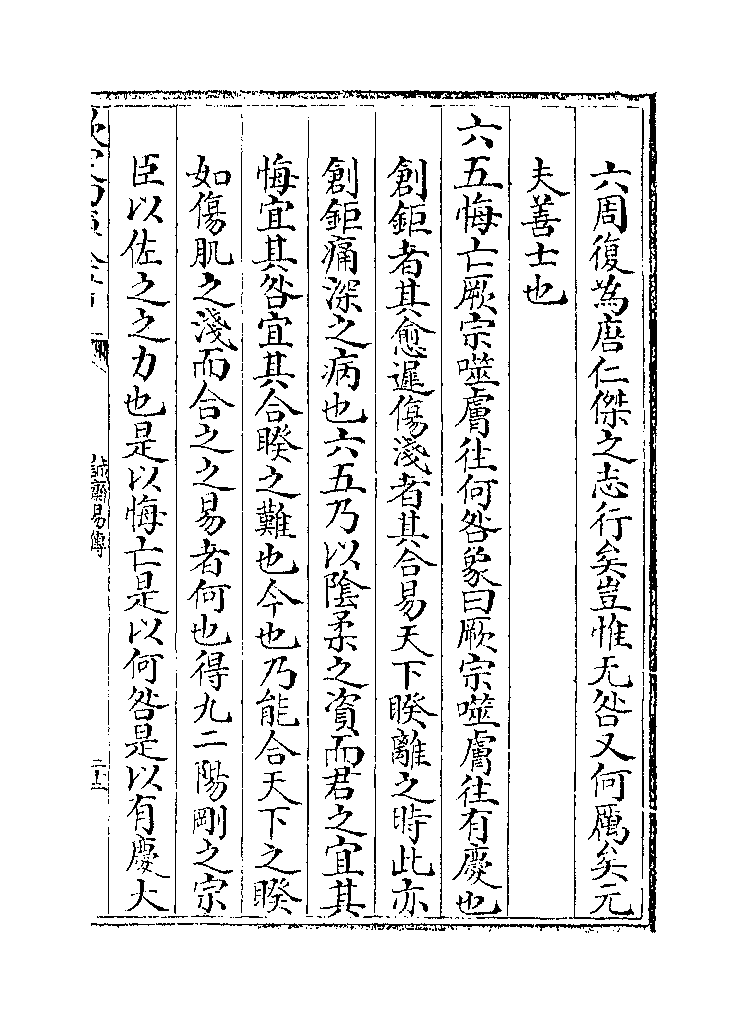 六周復為唐仁傑之志行矣豈惟无咎又何厲矣元
夫善士也
六五悔亡厥宗噬膚往何咎象曰厥宗噬膚往有慶也
創鉅者其愈遲傷淺者其合易天下睽離之時此亦
創鉅痛深之病也六五乃以陰柔之資而君之宜其
悔宜其咎宜其合睽之難也今也乃能合天下之睽
如傷肌之淺而合之之易者何也得九二陽剛之宗
臣以佐之之力也是以悔亡是以何咎是以有慶大
誠齋易傳
二十五